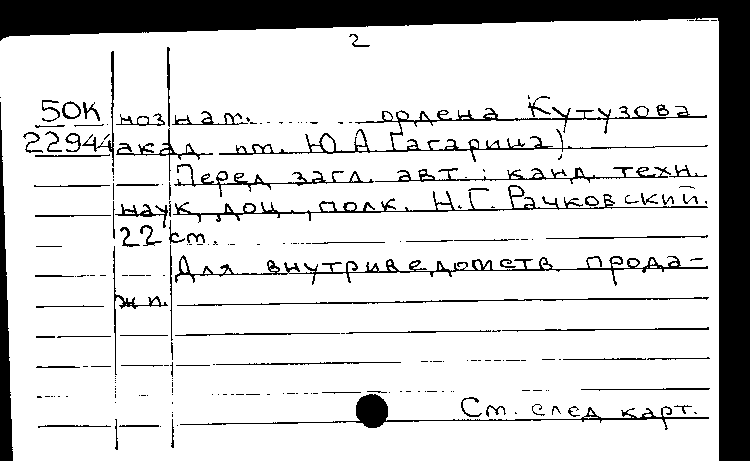 2
50К нознат. ордена Кутузова
22944 акад им. Ю А Гагарина)
Перед загл. авт.: канд. техн.
наук, доц., полк. Н.Г. Рачковский.
22 ст.
Для внутриведомств прода-
жи.
Ст. след карт.